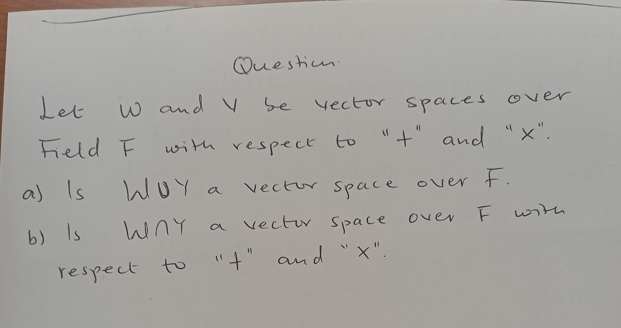 Question
Let W and V be vector spaces over
Field F with respect to "+" and "x".
a) Is WUY a vector space over F.
b) Is W∩Y a vector space over F with
respect to "+" and "x".